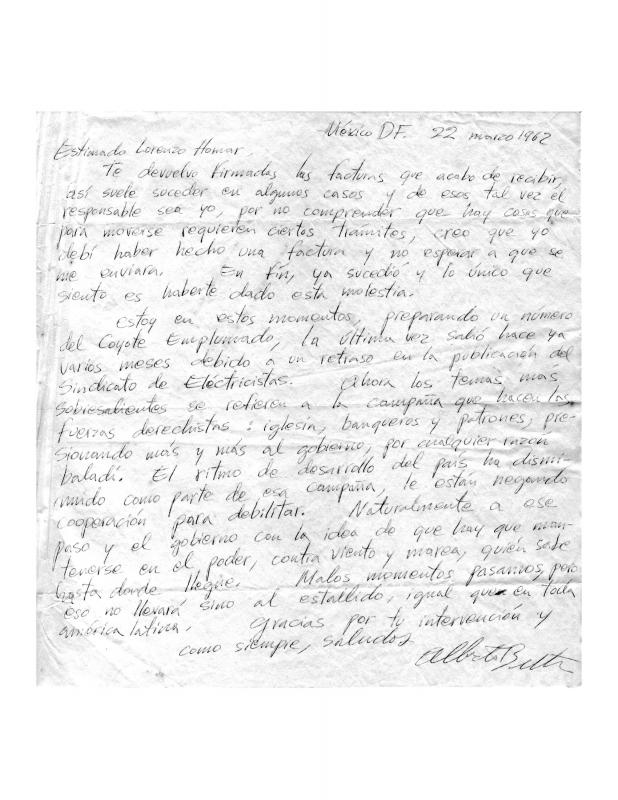 México DF. 22 marzo 1962
Estimado Lorenzo Homar.
Te devuelvo firmadas las facturas que acabo de recibir,
así suele suceder en algunos casos y de esos tal vez el
responsable sea yo, por no comprender que hay cosas que
para moverse requieren ciertos tramites, creo que yo
debí haber hecho una factura y no esperar a que se
me enviara. En fin, ya sucedio y lo único que
siento es haberte dado esta molestia.
Estoy en estos momentos, preparando un número
del Coyote Emplumado, la última vez salió hace ya
varios meses debido a un retraso en la publicación del
Sindicato de Electricistas. Ahora los temas más
sobresalientes se refieren a la campaña que hacen las
fuerzas derechistas: iglesia, banqueros y patrones, pre-
sionando más y más al gobierno, por cualquier razón
baladí. El ritmo de desarrollo del país ha dismi-
nuido como parte de esa campaña, le están negando
cooperación para debilitar. Naturalmente a ese
paso y el gobierno con la idea de que hay que man-
tenerse en el poder, contra viento y marea, quién sabe
hasta donde llegue. Malos momentos pasamos, pero
eso no llevará sino al estallido, igual que en toda
américa latina. Gracias por tu intervención y
como siempre, saludos
Alberto Beltrán